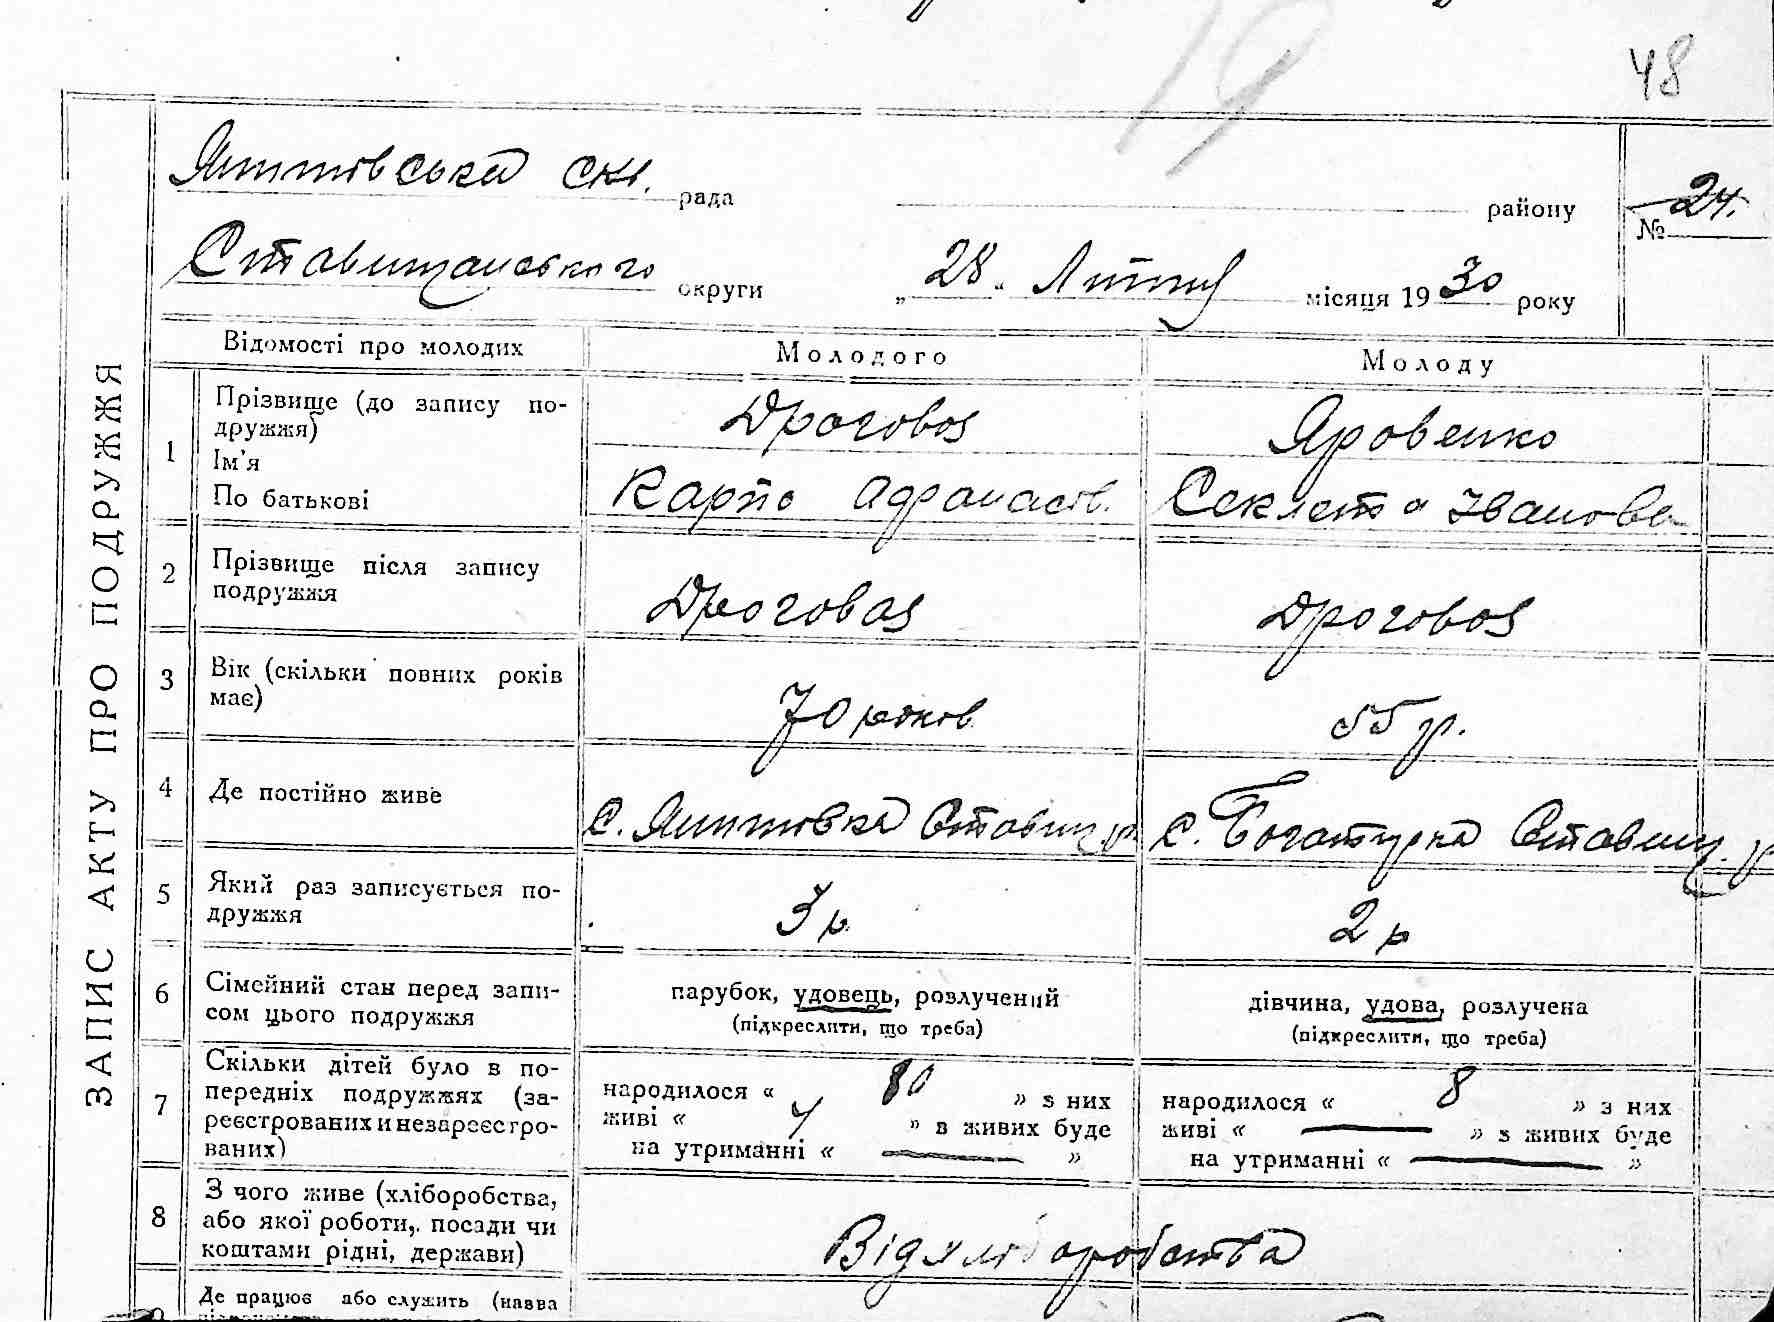 48
19
Янишівська скл. рада району № 24.
Ставищанського округи „28„ Лютня місяця 1930 року
ЗАПИС АКТУ ПРО ПОДРУЖЖЯ
Відомості про молодих Молодого Молоду
1 Прізвище (до запису по-
дружжя) Дроговоз Яровенко
Ім'я
По батькові Карпо Афанасів. Секлета Іванова
2 Прізвище після запису
подружжя Дроговоз Дроговоз
3 Вік (скільки повних років
має) 70 років 55 р.
4 Де постійно живе с. Янишівка Ставищ. р. с. Богатирка Ставищ. р
5 Який раз записується по-
дружжя 3 р 2 р
6 Сімейний стан перед запи-
сом цього подружжя
парубок, удовець, розлучений
(підкреслити, що треба)
дівчина, удова, розлучена
(підкреслити, що треба)
7 Скільки дітей було в по-
передніх подружжях (за-
реєстрованих и незареєстро-
ваних)
народилося « 10 » з них
живі « 4 » в живих буде
на утриманні « — »
народилося « 8 » з них
живі « — » з живих буде
на утриманні « — »
8 З чого живе (хліборобства,
або якої роботи,. посади чи
коштами рідні, держави)
Від хліборобства
9 Де працює або служить (назва